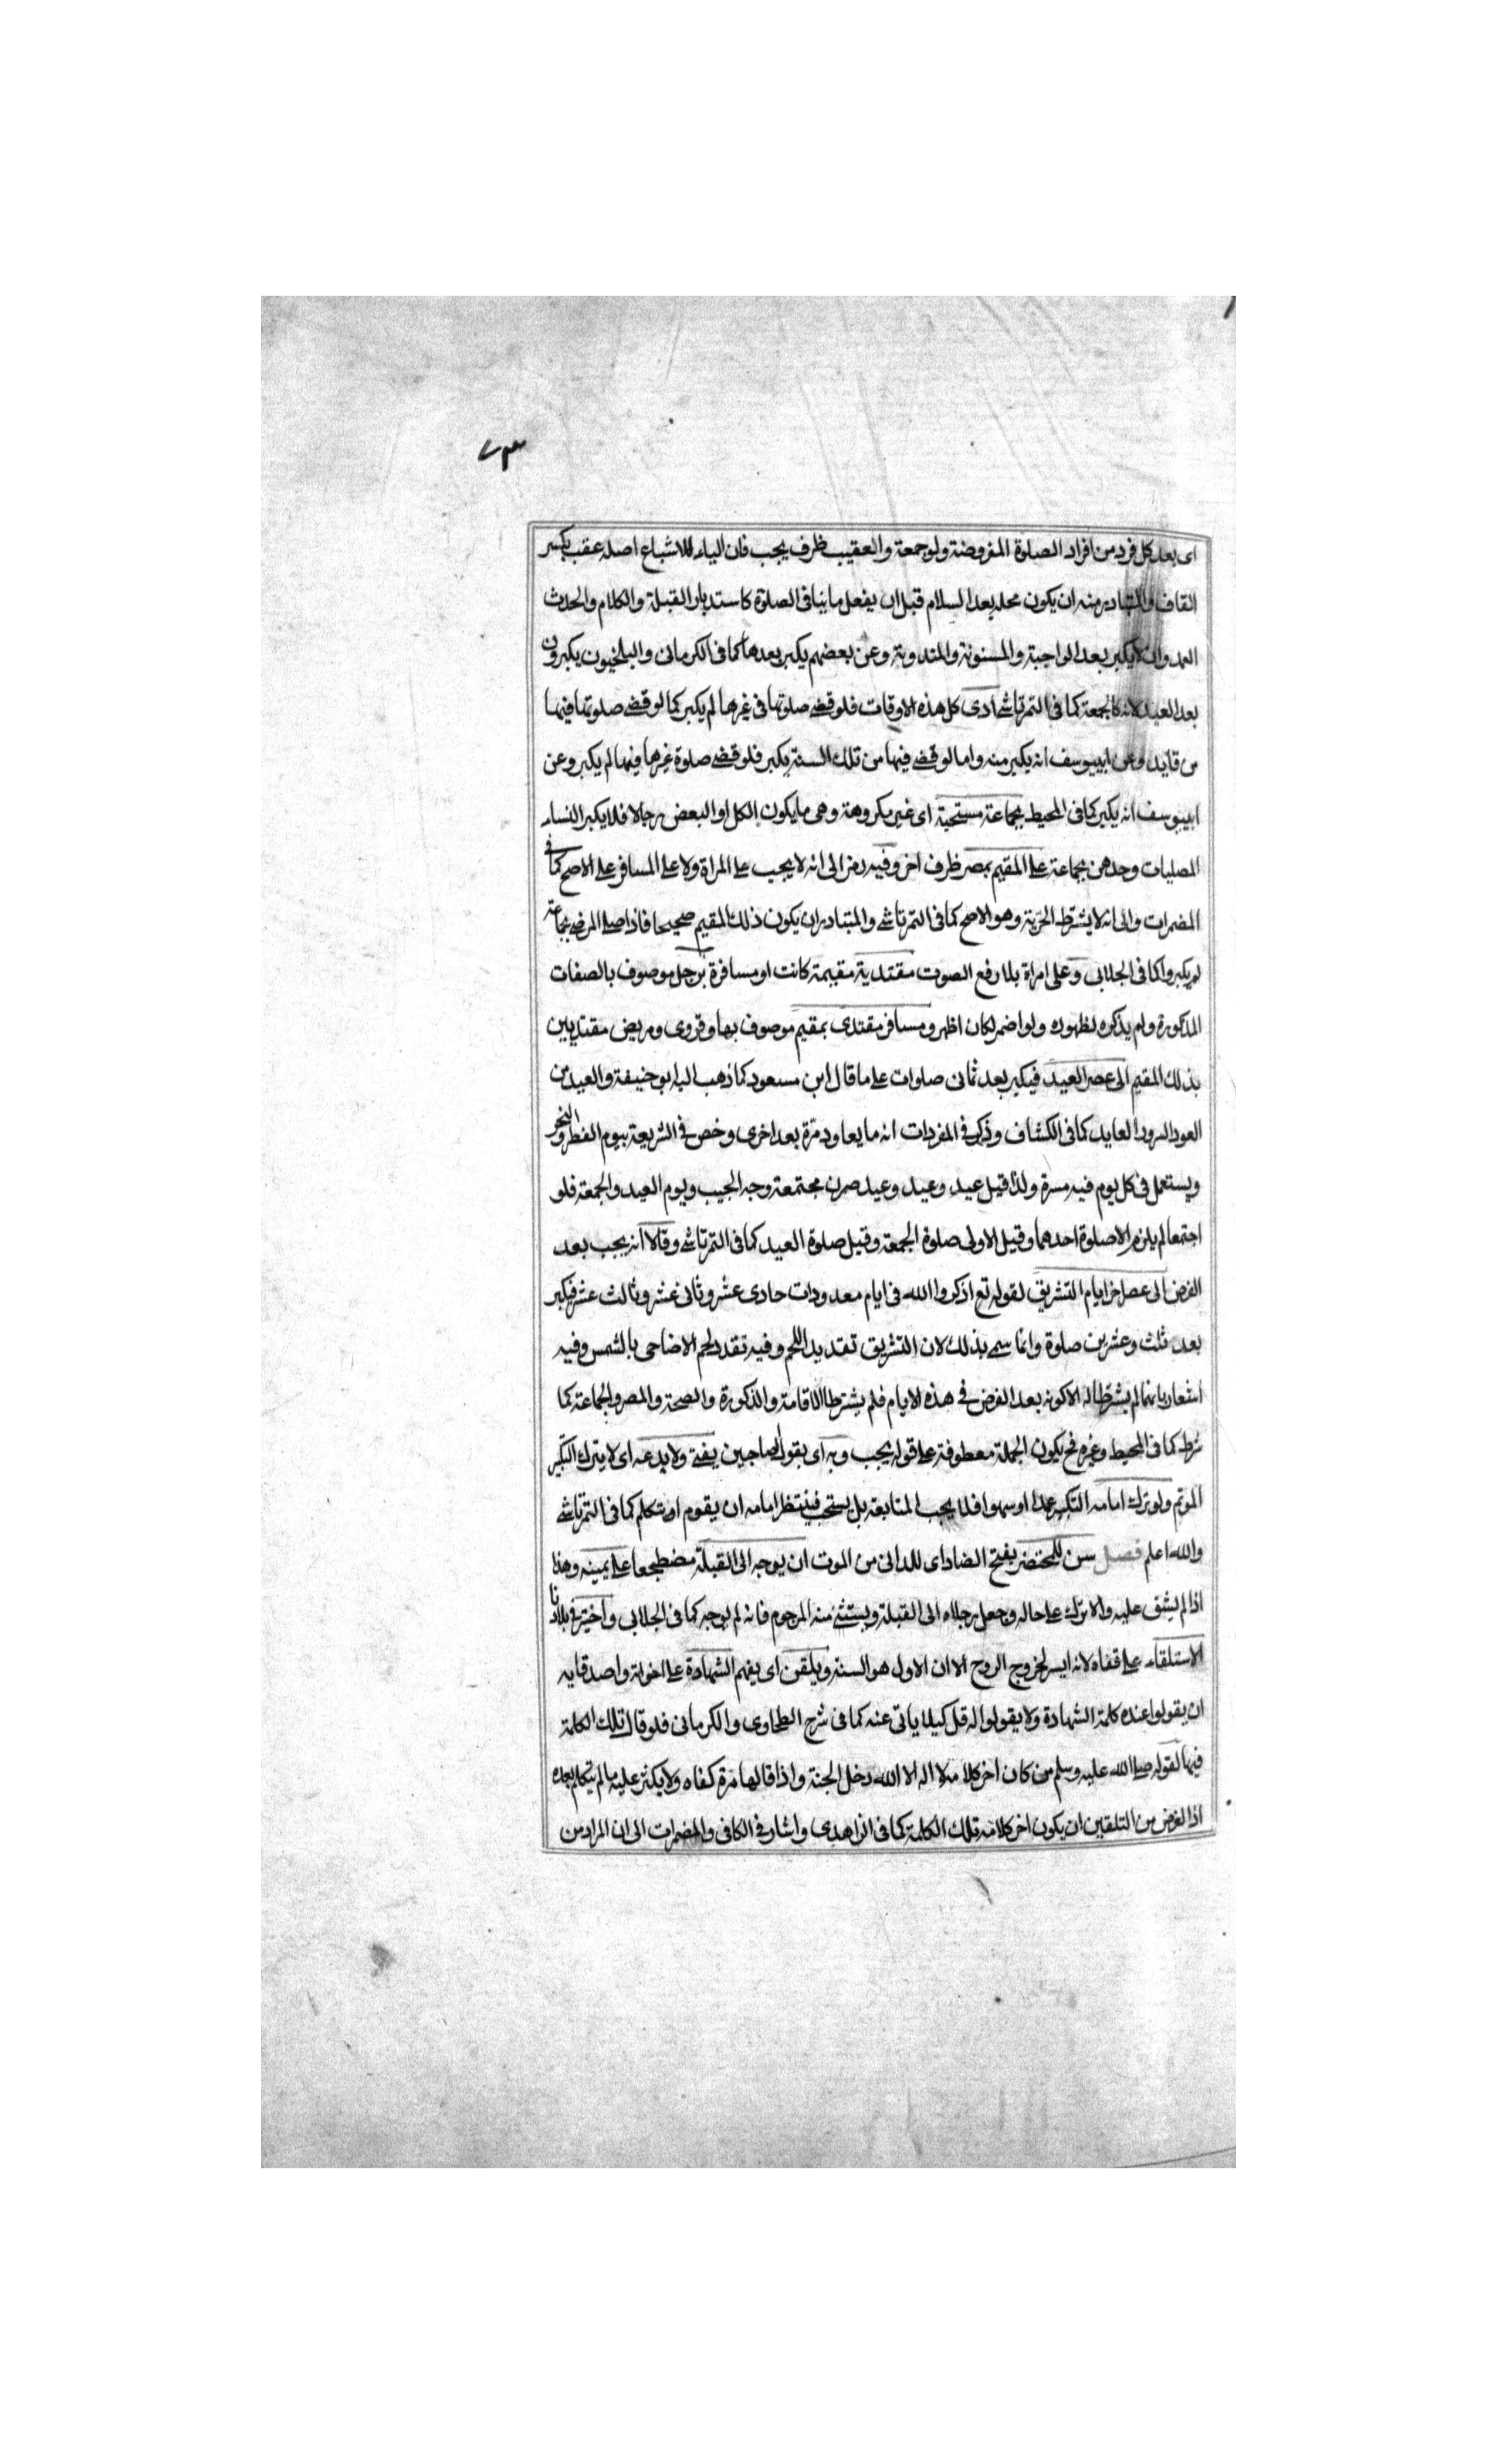 ٧٣
اى بعد كل فرد من افراد الصلوة المفروضة ولو جمعة والعقيب ظرف يجب فان الياء للاشباع اصله عقب بكسر
القاف والمتبادر منه ان يكون محله بعد السلام قبل ان يفعل ما ينافى الصلوة كاستدبار القبلة والكلام والحدث
العمد وان لا يكبر بعد الواجبة والمسنونة والمندوبة وعن بعضهم يكبر بعدها كما فى الكرمانى والبلخيون يكبرون
بعد العيد لانه كالجمعة كما فى التمرتاشى ادى كل هذه الاوقات فلو قضى صلوتها فى غيرها لم يكبر كما لو قضى صلوتها فيها
من قابد وعن ابييوسف انه يكبر منه واما لو قضى فيها من تلك السنة يكبر فلو قضى صلوة غيرها فيها لم يكبر وعن
ابييوسف انه يكبر كما فى المحيط بجماعة مستحبة اى غير مكروهة وهى ما يكون الكل او البعض رجالا فلا يكبر النساء
المصليات وحدهن بجماعة على المقيم بمصر ظرف اخر وفيه رمز الى انه لا يجب على المراة ولا على المسافر على الاصح كما فى
المضمرات والى انه لا يشترط الحرية وهو الاصح كما فى التمرتاشى والمتبادر ان يكون ذلك المقيم صحيحا فاذا صلى المرضى بجماعة
لم يكبروا كما فى الجلابى وعلى امراة بلا رفع الصوت مقتدية مقيمة كانت او مسافرة برجل موصوف بالصفات
المذكورة ولم يذكره لظهوره ولو اضمر لكان اظهر ومسافر مقتدى بمقيم موصوف بها وقروى ومريض مقتديين
بذلك المقيم الى عصر العيد فيكبر بعد ثمانى صلوات على ما قال ابن مسعود كما ذهب اليه ابو حنيفة والعيد من
العود السرود العايد كما فى الكشاف وذكر فى المفردات انه ما يعاود مرة بعد اخرى وخص فى الشريعة بيوم الفطر والنحر
ويستعمل فى كل يوم فيه مسرة ولذا قيل عيد وعيد وعيد صرن مجتمعة وجه الحبيب ويوم العيد والجمعة فلو
اجتمعا لم يلزم الا صلوة احدهما وقيل الاولى صلوة الجمعة وقيل صلوة العيد كما فى التمرتاشى وقالا انه يجب بعد
الفرض الى عصر اخر ايام التشريق لقوله تع اذكروا الله فى ايام معدودات حادى عشر وثانى عشر وثالث عشر فيكبر
بعد ثلث وعشرين صلوة وانما سمى بذلك لان التشريق تقديد اللحم وفيه تقدد لحم الاضاحى بالشمس وفيه
اشعار بانهما لم يشترطا له الا كونه بعد الفرض فى هذه الايام فلم يشترطا الاقامة والذكورة والصحة والمصر والجماعة كما
شرط كما فى المحيط وغيره فح يكون الجملة معطوفة على قوله يجب وبه اى بقول الصاحبين يفتى ولا يدعه اى لا يترك التكبير
الموتم ولو ترك امامه التكبير عمدا او سهوا فلا يجب المتابعة بل يستحب فينتظر امامه ان يقوم او يتكلم كما فى التمرتاشى
والله اعلم فصل سن للمحتضر بفتح الضاد اى للدانى من الموت ان يوجه الى القبلة مضطجعا على يمينه وهذا
اذا لم يشق عليه والا ترك على حاله وجعل رجلاه الى القبلة ويستثنى منه المرجوم فانه لم يوجه كما فى الجلابى واختير فى بلادنا
الاستلقاء على قفاه لانه ايسر لخروج الروح الا ان الاول هو السنة ويلقن اى يفهم الشهادة على اخوته واصدقايه
ان يقولوا عنده كلمة الشهادة ولا يقولوا له قل كيلا ياتى عنه كما فى شرح الطحاوى والكرمانى فلو قال تلك الكلمة
فبها لقوله صلى الله عليه وسلم من كان اخر كلامه لا اله الا الله دخل الجنة واذا قالها مرة كفاه ولا يكثر عليه ما لم يتكلم بعده
اذ الغرض من التلقين ان يكون اخر كلامه تلك الكلمة كما فى الزاهدى واشار فى الكافى والمضمرات الى ان المراد من